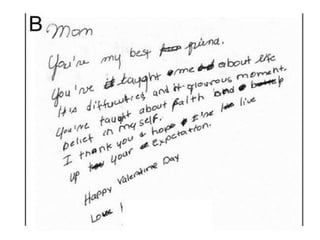 B
Mom
You're my best friend.
You've taught me about life
It's difficulties, and it glourous moment.
You've taught about faith and
belief in myself.
I thank you & hope I've live
up your expctation.
Happy Valentine Day
Love